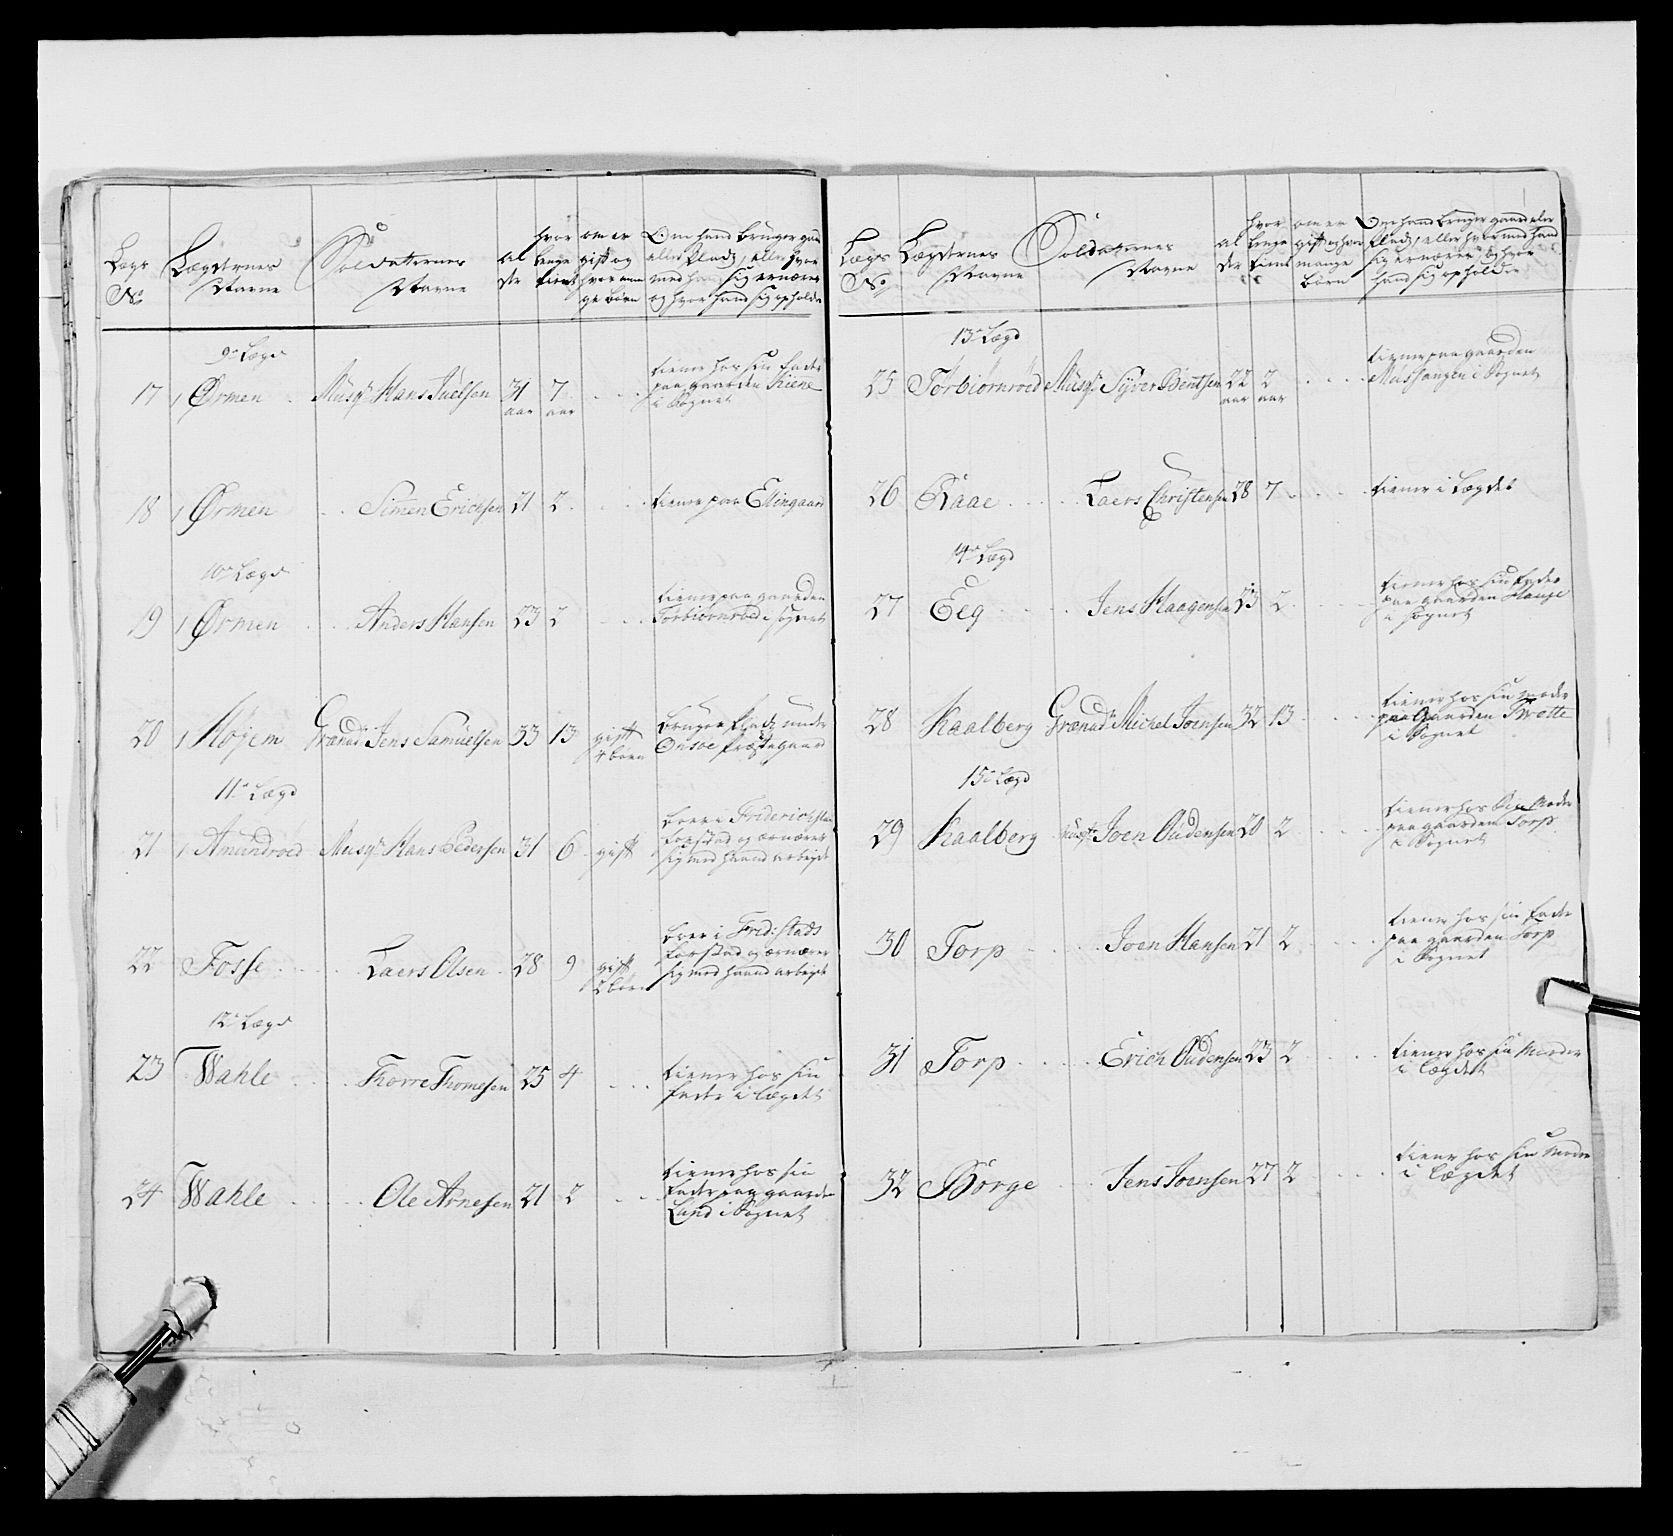 Lægs No
Lægdernes Navne
Soldatternes Navne
Al der
hvor lenge tient
om er gift og hvor man ge børn
Om hand bruger gaar eller Plads, eller hvor med hand sig ernærer og hvor hand sig opholder
9de Lægd
17 1 Ørmen Musqr Hans Juelsen 31 aar 7 aar
tiener hos sin fader
paa gaarden Kiene
i Sognet
18 1 Ørmen Simen Ericksen 21 2 tiener paa Elingaard
10de Lægd
19 1 Ørmen Anders Hansen 23 2
tiener paa gaarden
Torbiørnrød i sognet
20 1 Møjem Grænadr Jens Samuelsen 33 13 gift 4 børn
bruger Plads under
Onsøe Præstegaard
11te Lægd
21 1 Amundrød Musqr Hans Pedersen 31 6 gift
boer i Friderichstad
forstad og ernærer
sig med haand arbejde
22 Fosse Laers Olsen 28 9 gift 2 børn
boer i Frid:stads
forstad og ernærer
sig med haand arbejde
12te Lægd
23 Wahle Thorre Thomesen 25 4
tiener hos sin
fader i lægdet
24 Wahle Ole Arnesen 21 2
tiener hos sin
fader paa gaarden
Land i Sognet
Lægs No
Lægdernes Navne
Soldaternes Navne
al der
hvor lenge tient
om er gift og hvor mange børn
Om hand bruger gaard eler
Plads, eller hvor med hand
sig ernærer, og hvor
hand sig opholder
13de Lægd
25 Torbiørnrød Musqr Syver Bentsen 22 aar 2 aar
tiener paa gaarden
i Sognet
26 Raae Laers Christensen 28 7 tiener i Lægdet
14de Lægd
27 Eeg Jens Haagensen 23 2
tiener hos sin fader
paa gaarden Hauge
i sognet
28 Kaalberg Grænadr Michel Joensen 32 13
tiener hos sin moder
paa Gaarden Twette
i Sognet
15de Lægd
29 Kaalberg Musqr Joen Oudensen 20 2
tiener hos sin Moder
paa gaarden Torp
i Sognet
30 Torp Joen Hansen 21 2
tiener hos sin fader
paa gaarden Torp
i Sognet
31 Torp Erich Oudensen 23 2
tiener hos sin Moder
i lægdet
32 Borge Jens Joensen 27 2
tiener hos sin Moder
i lægdet